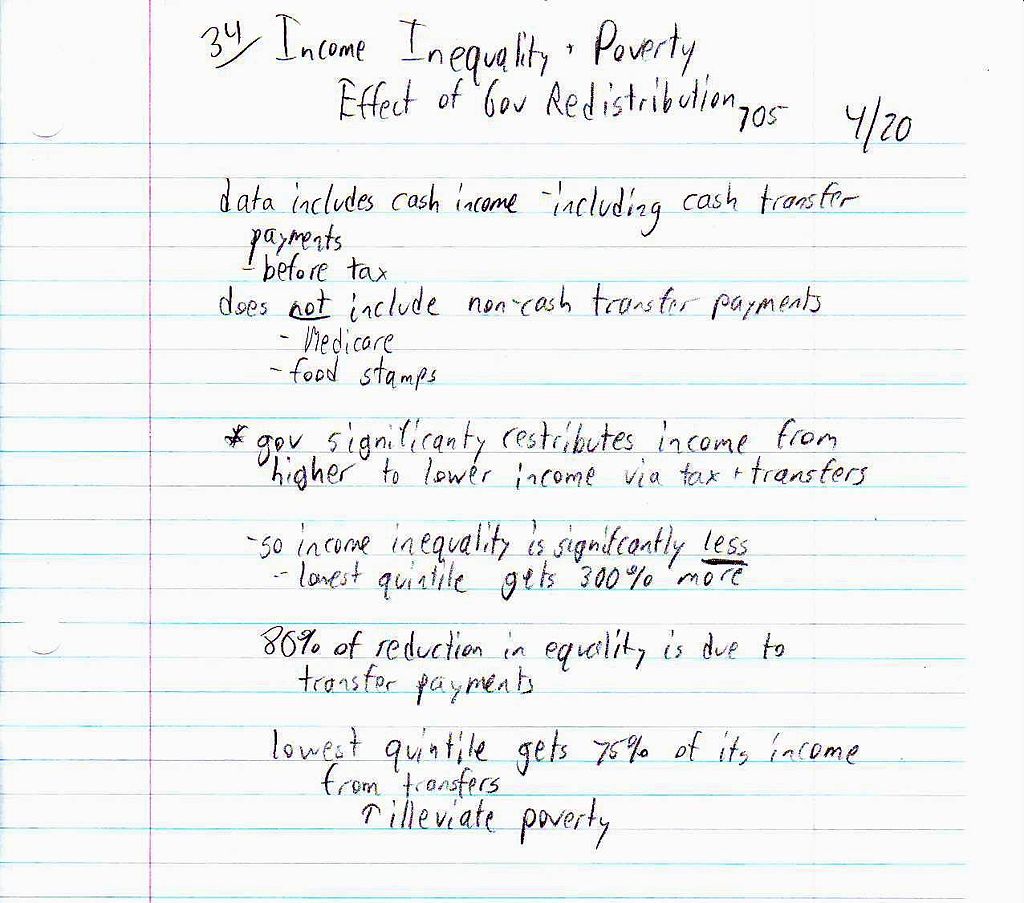 34/ Income Inequality + Poverty
Effect of Gov Redistribution 705 4/20
data includes cash income - including cash transfer
payments
- before tax
does not include non-cash transfer payments
- Medicare
- food stamps
* gov significanty restributes income from
higher to lower income via tax + transfers
- so income inequality is signifcantly less
- lowest quintile gets 300% more
80% of reduction in equality is due to
transfer payments
lowest quintile gets 75% of its income
from transfers
↑ illeviate poverty